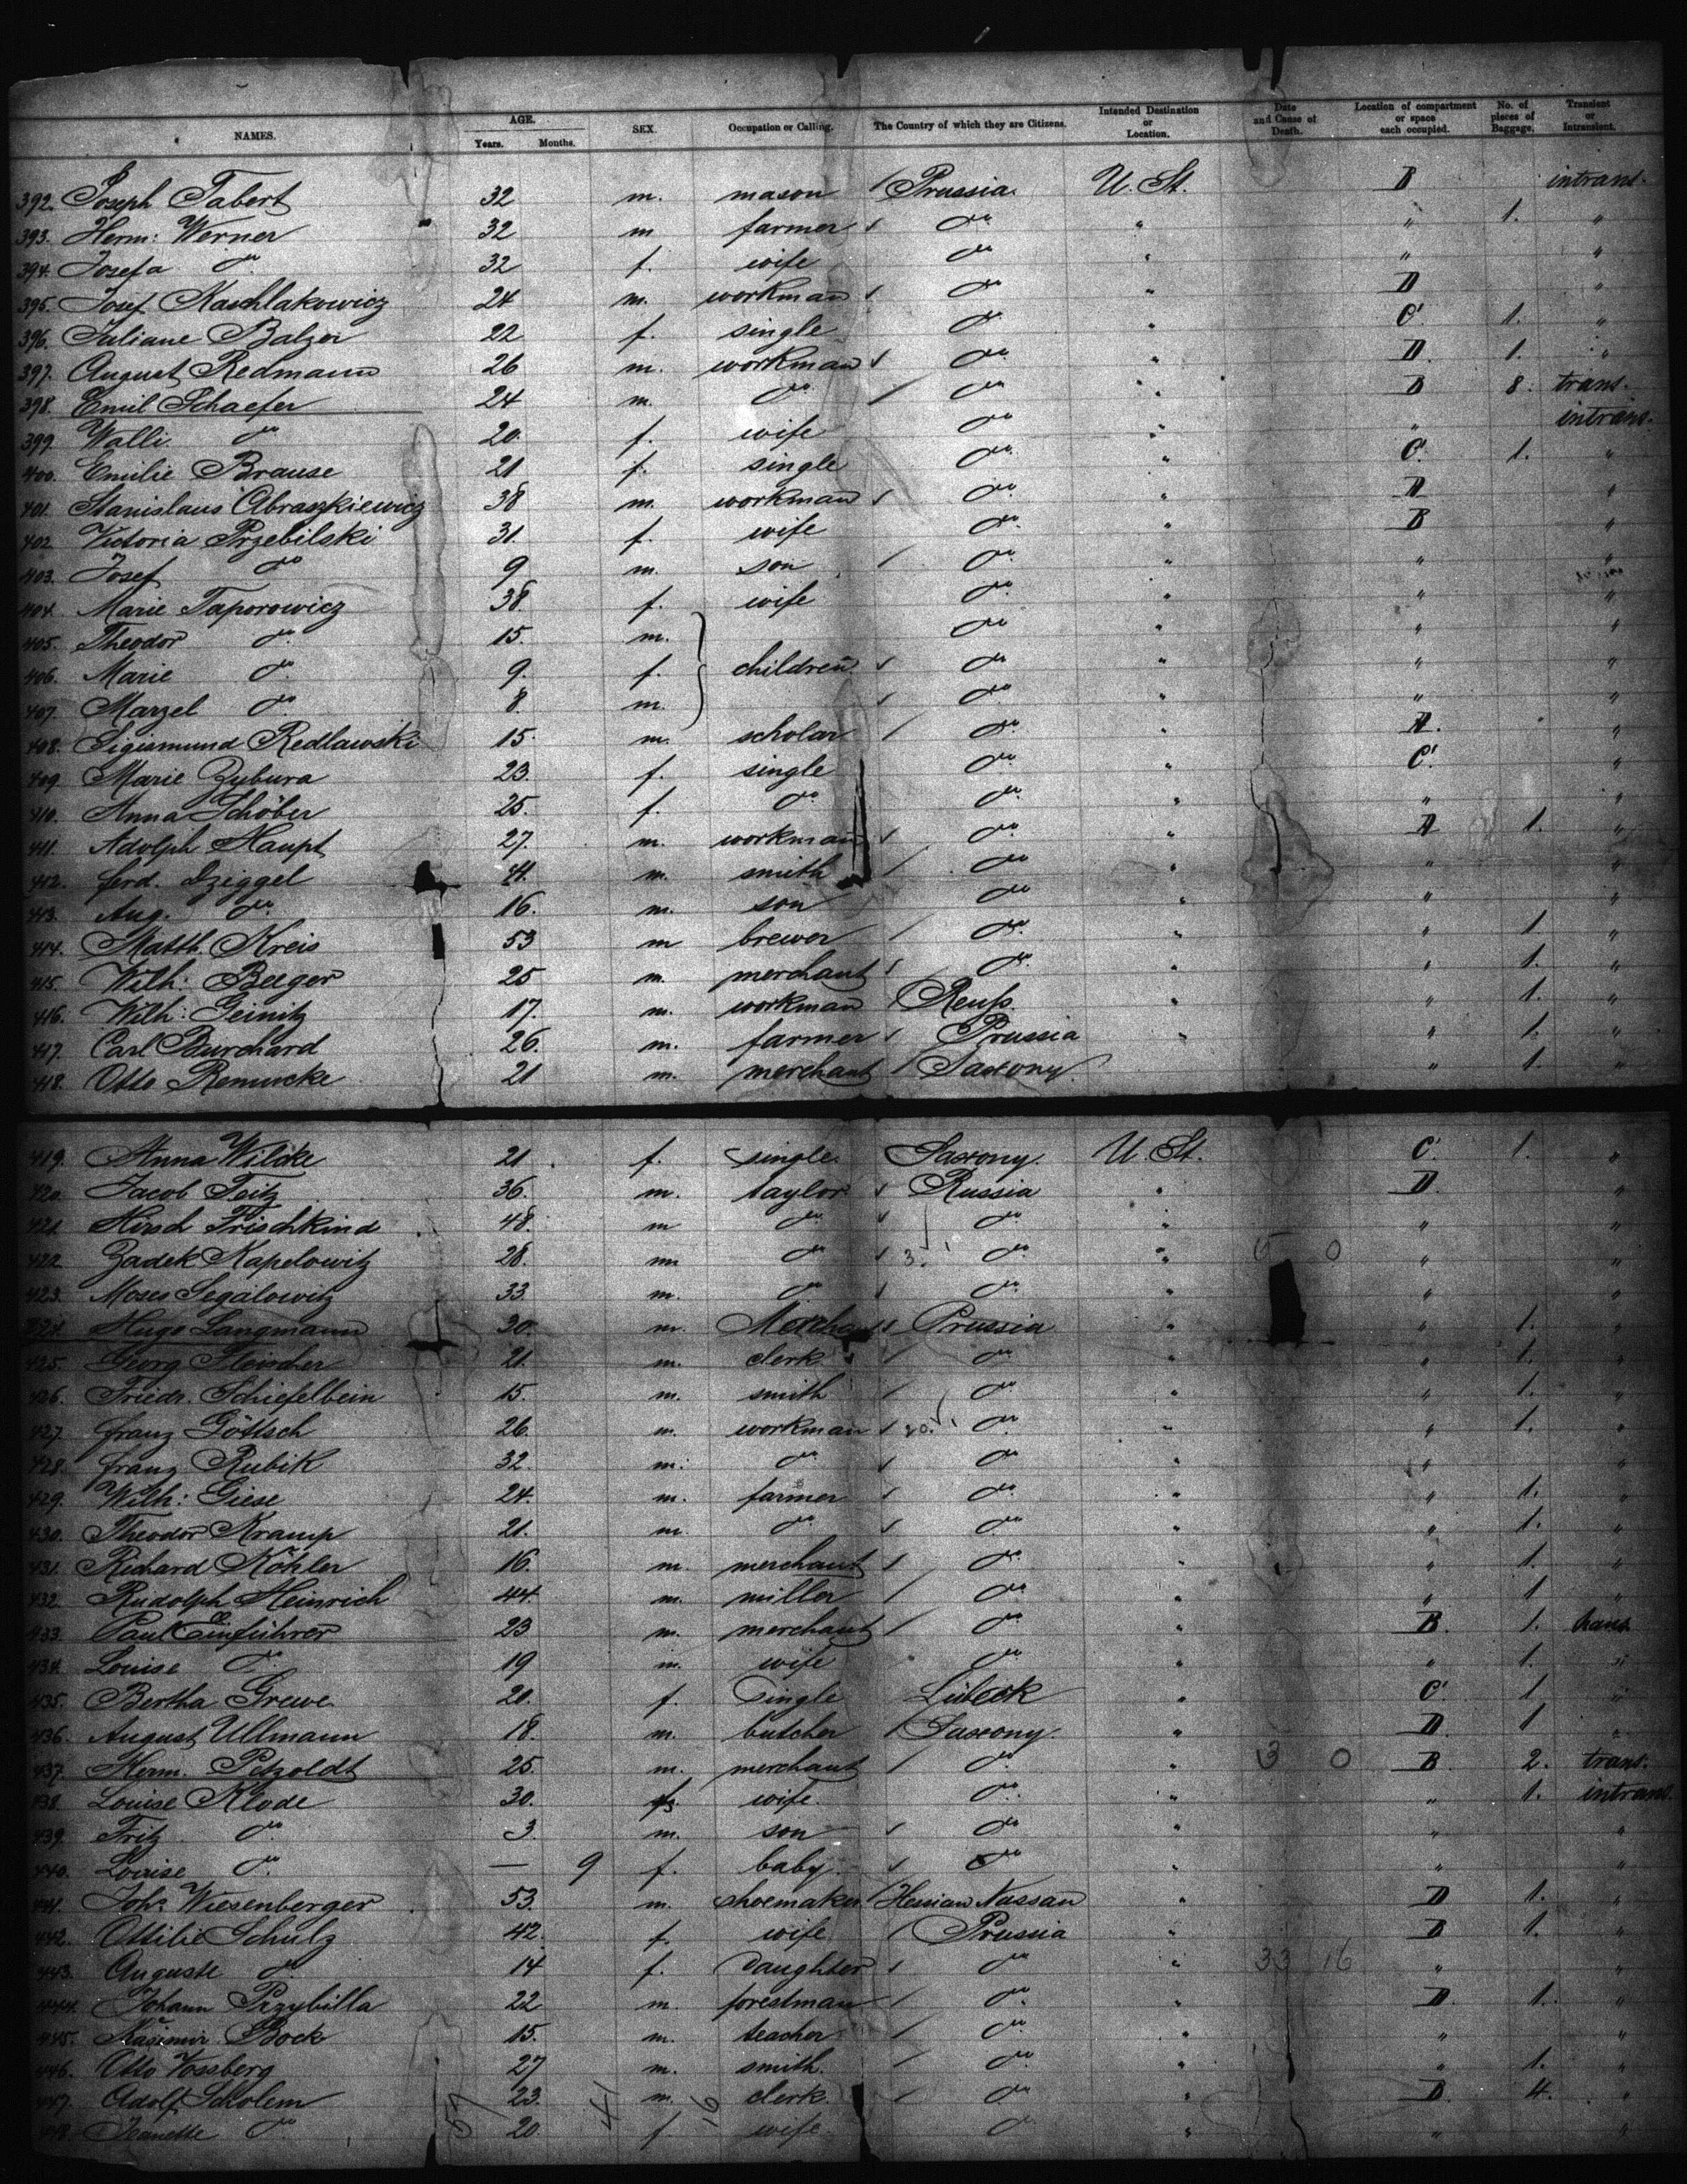 NAMES. AGE. Years. Months. SEX. Occupation or Calling. The Country of which they are Citizens. Intended Destination or Location. Date and Cause of Death. Location of compartment or space each occupied. No. of pieces of Baggage. Transient or Intransient.
392. Joseph Tabert 32 m. mason Prussia U. St. B intrans.
393. Herm: Werner 32 m farmer do " " 1. "
394. Josefa do 32 f. wife do " " "
395. Josef Kaschlakowicz 24 m. workman do " D "
396. Juliane Balzer 22 f. single do " C. 1. "
397. August Redmann 26 m. workman do " D. 1. "
398. Emil Schaefer 24 m. do do " B 8. trans.
399. Walli do 20. f. wife do " " intrans.
400. Emilie Brause 21 f. single do " C. 1. "
401. Stanislaus Abraszkiewicz 38 m. workman do " D "
402. Victoria Przebilski 31. f. wife do " B "
403. Josef do 9 m. son do " " "
404. Marie Taporowicz 38. f. wife do " " "
405. Theodor do 15. m. do " " "
406. Marie do 9. f. children do " " "
407. Marzel do 8. m. do " " "
408. Sigismund Redlawski 15. m. scholar do " D. "
409. Marie Zybura 23. f. single do " C. "
410. Anna Schöber 25. f. do do " " "
411. Adolph Haupt 27. m. workman do " D 1. "
412. Ferd. Dziggel 44. m. smith do " " "
413. Aug. do 16. m. son do " " "
414. Matth. Kreis 53 m brewer do " " 1. "
415. Wilh: Beeger 25 m. merchant do " " 1. "
416. Wilh: Geinitz 17. m. workman Reuss. " " 1. "
417. Carl Burchard 26. m. farmer Prussia " " 1. "
418. Otto 21 m. merchant Saxony. " 1. "
419. Anna Wilcke 21. f. single. Saxony. U. St. C. 1. "
420. Jacob Teitz 36. m. taylor Russia " D. "
421. Hirsch Frischkind 48. m do do " " "
422. Zadek Kapelowitz 28. m do do " " "
423. Moses Segalowitz 33. m. do do " " "
424. Hugo Langmann 30. m. Merchant Prussia " " 1. "
425. Georg Fleischer 21. m. clerk do " " 1. "
426. Friedr. Schiefelbein 15. m. smith do " " 1. "
427. Franz Göttsch 26. m. workman do " " 1. "
428. Franz Rubik 32. m. do do " " "
429. Wilh: Giese 24. m. farmer do " " 1. "
430. Theodor Kramp 21. m. do do " " 1. "
431. Richard Köhler 16. m. merchant do " " 1. "
432. Rudolph Heinrich 44. m. miller do " " 1 "
433. Paul Einführer 23 m. merchant do " B. 1. trans.
434. Louise do 19 m. wife do " " 1. "
435. Bertha Grewe 20. f. Single Lübeck " C. 1. "
436. August Ullmann 18. m. butcher Saxony. " D. 1 "
437. Herm. Petzoldt 25. m. merchant do " B 2. trans.
438. Louise Klode 30. f. wife. do " " 1. intrans.
439. Fritz do 3. m. son do " " "
440. Louise do — 9 f. baby. do " " "
441. Joh: Wiesenberger 53. m. shoemaker Hessian Nassau " D 1. "
442. Ottilie Schulz 42. f. wife Prussia " B 1. "
443. Auguste do 14 f. Daughter do " 33 16 " "
444. Johann Przybilla 22 m. forestman do " D. 1. "
445. Kasimir Bock 15. m. teacher do " " "
446. Otto Vossberg 27 m. smith. do " " 1. "
447. Adolf Scholem 23. m. clerk. do " B. 4. "
448. Jeanette do 20. f wife do " " "